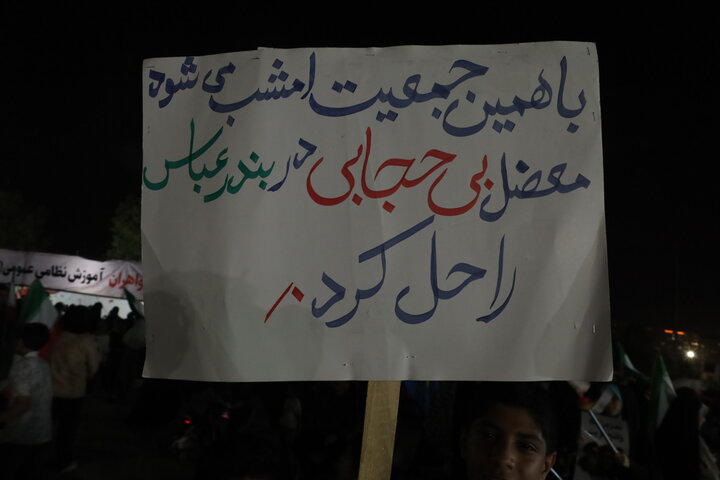 با همین جمعیت امشب می شود
معضل بی حجابی در بندرعباس
را حل کرد.
واهران آموزش نظامی عمومی